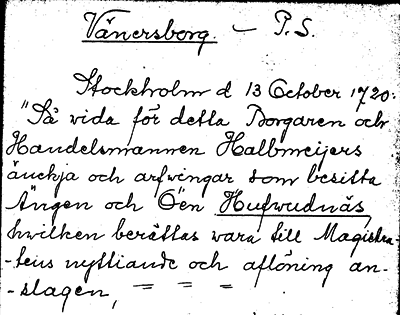 Vänersborg. — P.S.
Stockholm d 13 October 1720:
"Så vida för detta Borgaren och
Handelsmannen Halbmeijers
änckja och arfwingar som besitta
Ängen och Öen Hufwudnäs
hwilken berättas vara till Magistra-
-tens nyttiande och aflöning an-
-slagen, = = =